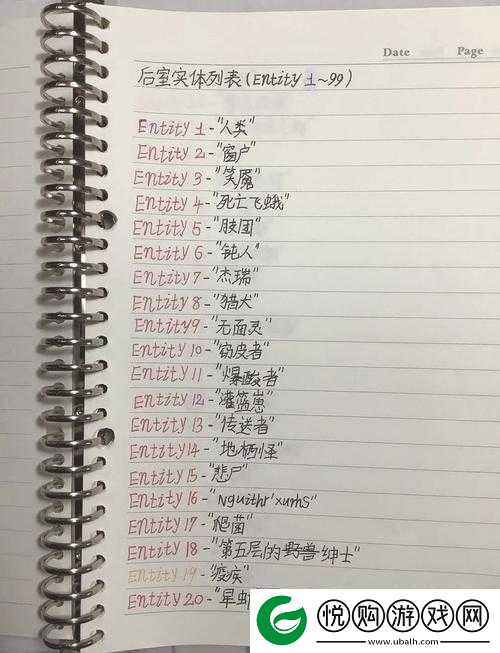 Date Page
后室实体列表(Entity 1~99)
Entity 1-"人类"
Entity 2-"窗户"
Entity 3-"笑魇"
Entity 4-"死亡飞蛾"
Entity 5-"肢团"
Entity 6-"钝人"
Entity 7-"杰瑞"
Entity 8-"猎犬"
Entity 9-"无面灵"
Entity 10-"窃皮者"
Entity 11-"爆酸者"
Entity 12-"灌篮崽"
Entity 13-"传送者"
Entity 14-"地栖怪"
Entity 15-"悲尸"
Entity 16-"Nguithr'xurhS"
Entity 17-"爬菌"
Entity 18-"第五层的野兽绅士"
Entity 19-"疫疾"
Entity 20-"旱
悦购游戏网
www.ubalh.com